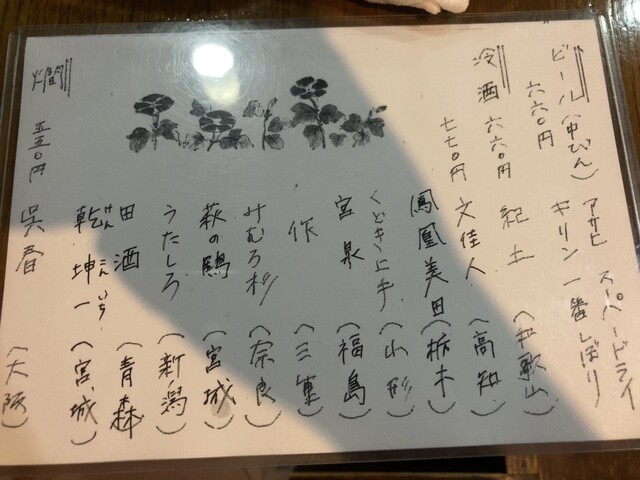 ビール(中びん)
六六〇円
アサヒ スーパードライ
キリン 一番しぼり
冷酒 六六〇円
紀土 (和歌山)
七七〇円
文佳人 (高知)
鳳凰美田 (栃木)
くどき上手 (山形)
宮泉 (福島)
作 (三重)
みむろ杉 (奈良)
萩の鶴 (宮城)
うたしろ (新潟)
田酒 (青森)
乾坤一 (宮城)
けんこんいち
燗
五五〇円
呉春 (大阪)